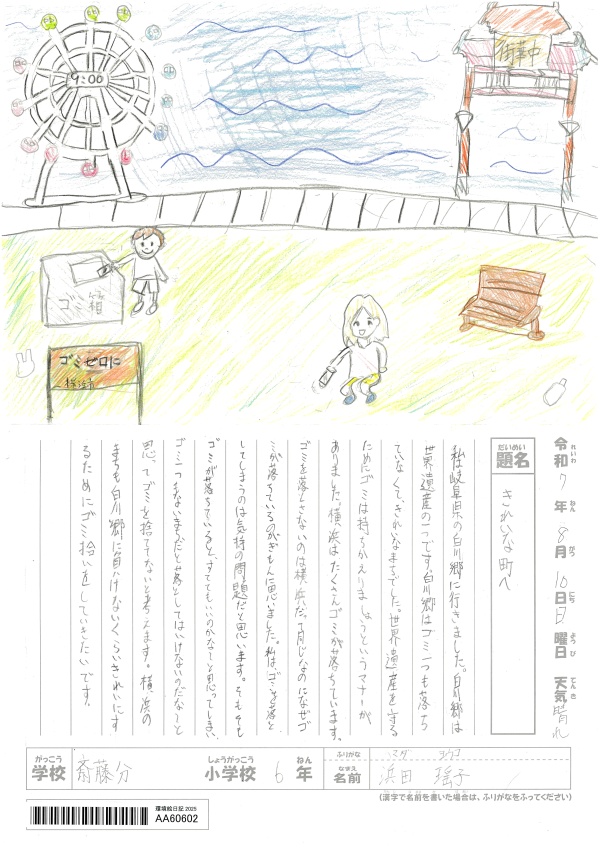 9:00
街華中
ゴミ箱
ゴミゼロに
横浜市
令和7年8月10日日曜日 天気晴れ
れいわ ねん がつ にち ようび てんき
だいめい
題名
きれいな町へ
私は岐阜県の白川郷に行きました。白川郷は
世界遺産の一つです。白川郷はゴミ一つも落ち
ていなくて、きれいなまちでした。世界遺産を守る
ためにゴミは持ちかえりましょうというマナーが
ありました。横浜はたくさんゴミが落ちています。
ゴミを落とさないのは横浜だって同じなのになぜゴ
ミが落ちているのかぎもんに思いました。私は、ゴミを落と
してしまうのは気持の問題だと思います。そもそも
ゴミが落ちていると、すててもいいのかな〜と思ってしまい、
ゴミ一つもないまちだと落としてはいけないのだな〜と
思ってゴミを捨ててないと考えます。横浜の
まちも白川郷に負けないくらいきれいにす
るためにゴミ拾いをしていきたいです。
がっこう しょうがっこう ねん ふりがな ハマダ ヨウコ
学校 斎藤分 小学校 6年 なまえ 名前 浜田 瑶子
(漢字で名前を書いた場合は、ふりがなをふってください)
環境絵日記 2025
AA60602